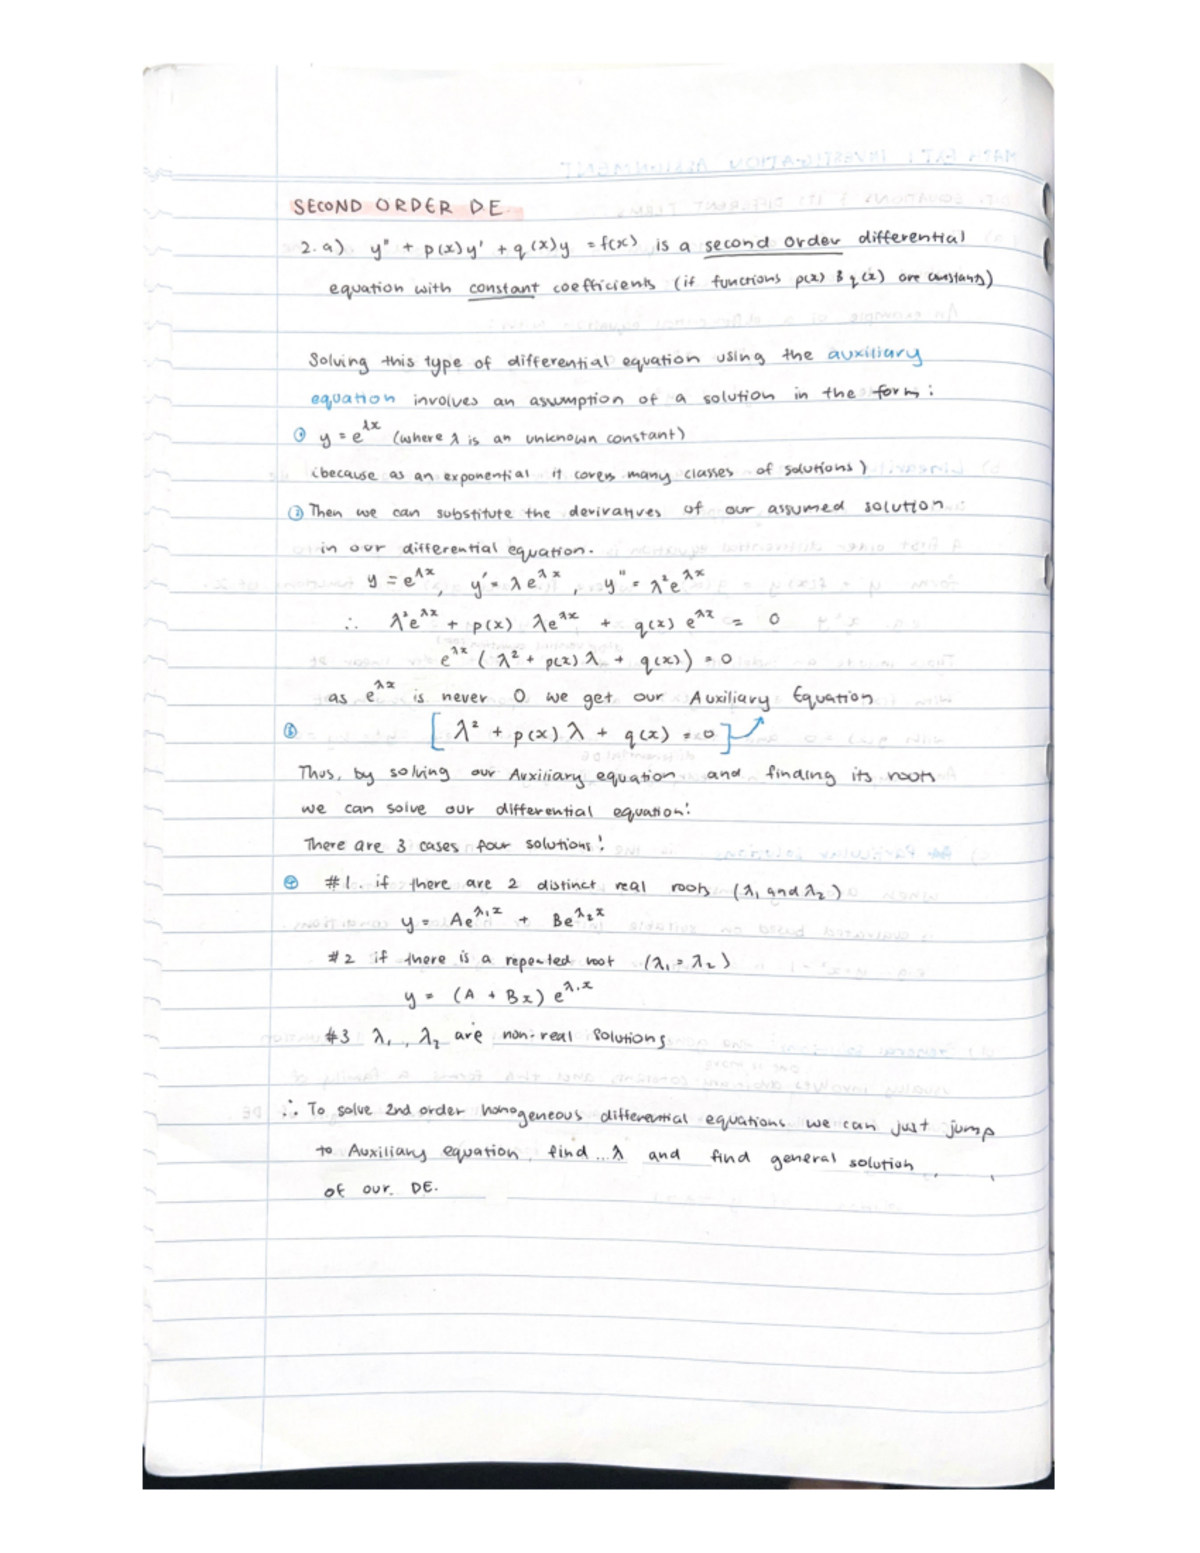 SECOND ORDER DE
2. a) y" + p(x)y' + q(x)y = f(x) is a second order differential
equation with constant coefficients (if functions p(x) & q(x) are constants)
Solving this type of differential equation using the auxiliary
equation involves an assumption of a solution in the form:
① y = e^λx (where λ is an unknown constant)
(because as an exponential it covers many classes of solutions)
② Then we can substitute the derivatives of our assumed solution
in our differential equation.
y = e^λx, y' = λe^λx, y" = λ²e^λx
∴ λ²e^λx + p(x) λe^λx + q(x) e^λx = 0
e^λx (λ² + p(x)λ + q(x)) = 0
as e^λx is never 0 we get our Auxiliary Equation
③ [λ² + p(x)λ + q(x) = 0]
Thus, by solving our Auxiliary equation and finding its roots
we can solve our differential equation!
There are 3 cases four solutions!
④ #1. if there are 2 distinct real roots (λ₁ and λ₂)
y = Ae^λ₁x + Be^λ₂x
#2 if there is a repeated root (λ₁ = λ₂)
y = (A + Bx) e^λ₁x
#3 λ₁, λ₂ are non-real solutions
∴ To solve 2nd order homogeneous differential equations we can just jump
to Auxiliary equation, find λ and find general solution
of our DE.